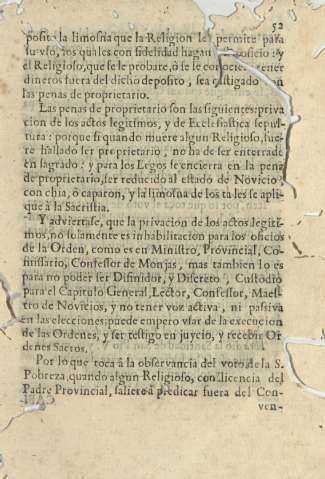 52
posito la limosna que la Religion le permite para
su vso, los quales con fidelidad hagan oficio: y
el Religioso, que se le probare, ò se le conociere tener
dineros fuera del dicho deposito, sea castigado con
las penas de proprietario.
Las penas de proprietario son las siguientes: priva
cion de los actos legitimos, y de Ecclesiastica sepul-
tura: porque si quando muere algun Religioso, fue-
re hallado ser proprietario, no ha de ser enterrado
en sagrado: y para los Legos se encierra en la pena
de proprietario, ser reducido al estado de Novicio
con chia, ò caparon, y la limosna de los tales se apli-
que à la Sacristia.
Y adviertase, que la privacion de los actos legiti-
mos, no solamente es inhabilitacion para los oficios
de la Orden, como es en Ministro, Provincial, Co-
missario, Confessor de Monjas, mas tambien lo es
para no poder ser Difinidor, y Discreto, Custodio
para el Capitulo General, Lector, Confessor, Maes-
tro de Novicios, y no tener voz activa, ni passiva
en las elecciones; puede empero vsar de la execucion
de las Ordenes, y ser testigo en juycio, y recebir Or
denes Sacros.
Por lo que toca à la observancia del voto de la S.
Pobreza, quando algun Religioso, con licencia del
Padre Provincial, saliere à predicar fuera del Con-
ven-